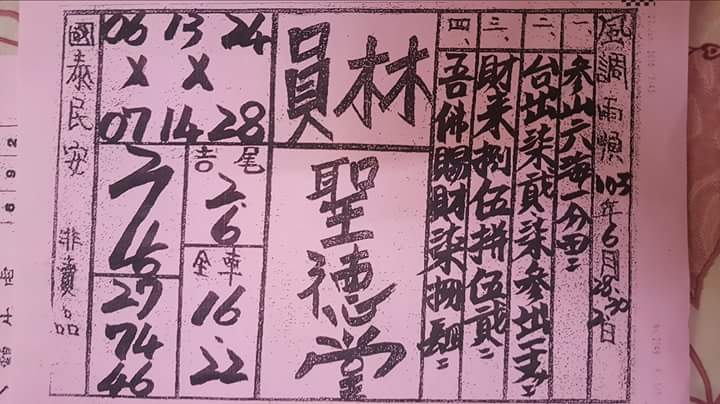 風調雨順 103年6月28.30.2日
一、參山六海一分田:
二、台出柒貳柒參出一支:
三、財來捌伍拼伍貳:
四、吾們賜財柒捌迎:
員林
聖德堂
06 13 24
X X
07 14 28
吉尾
2.6
全車
16
22
27
74
46
國泰民安 非賣品